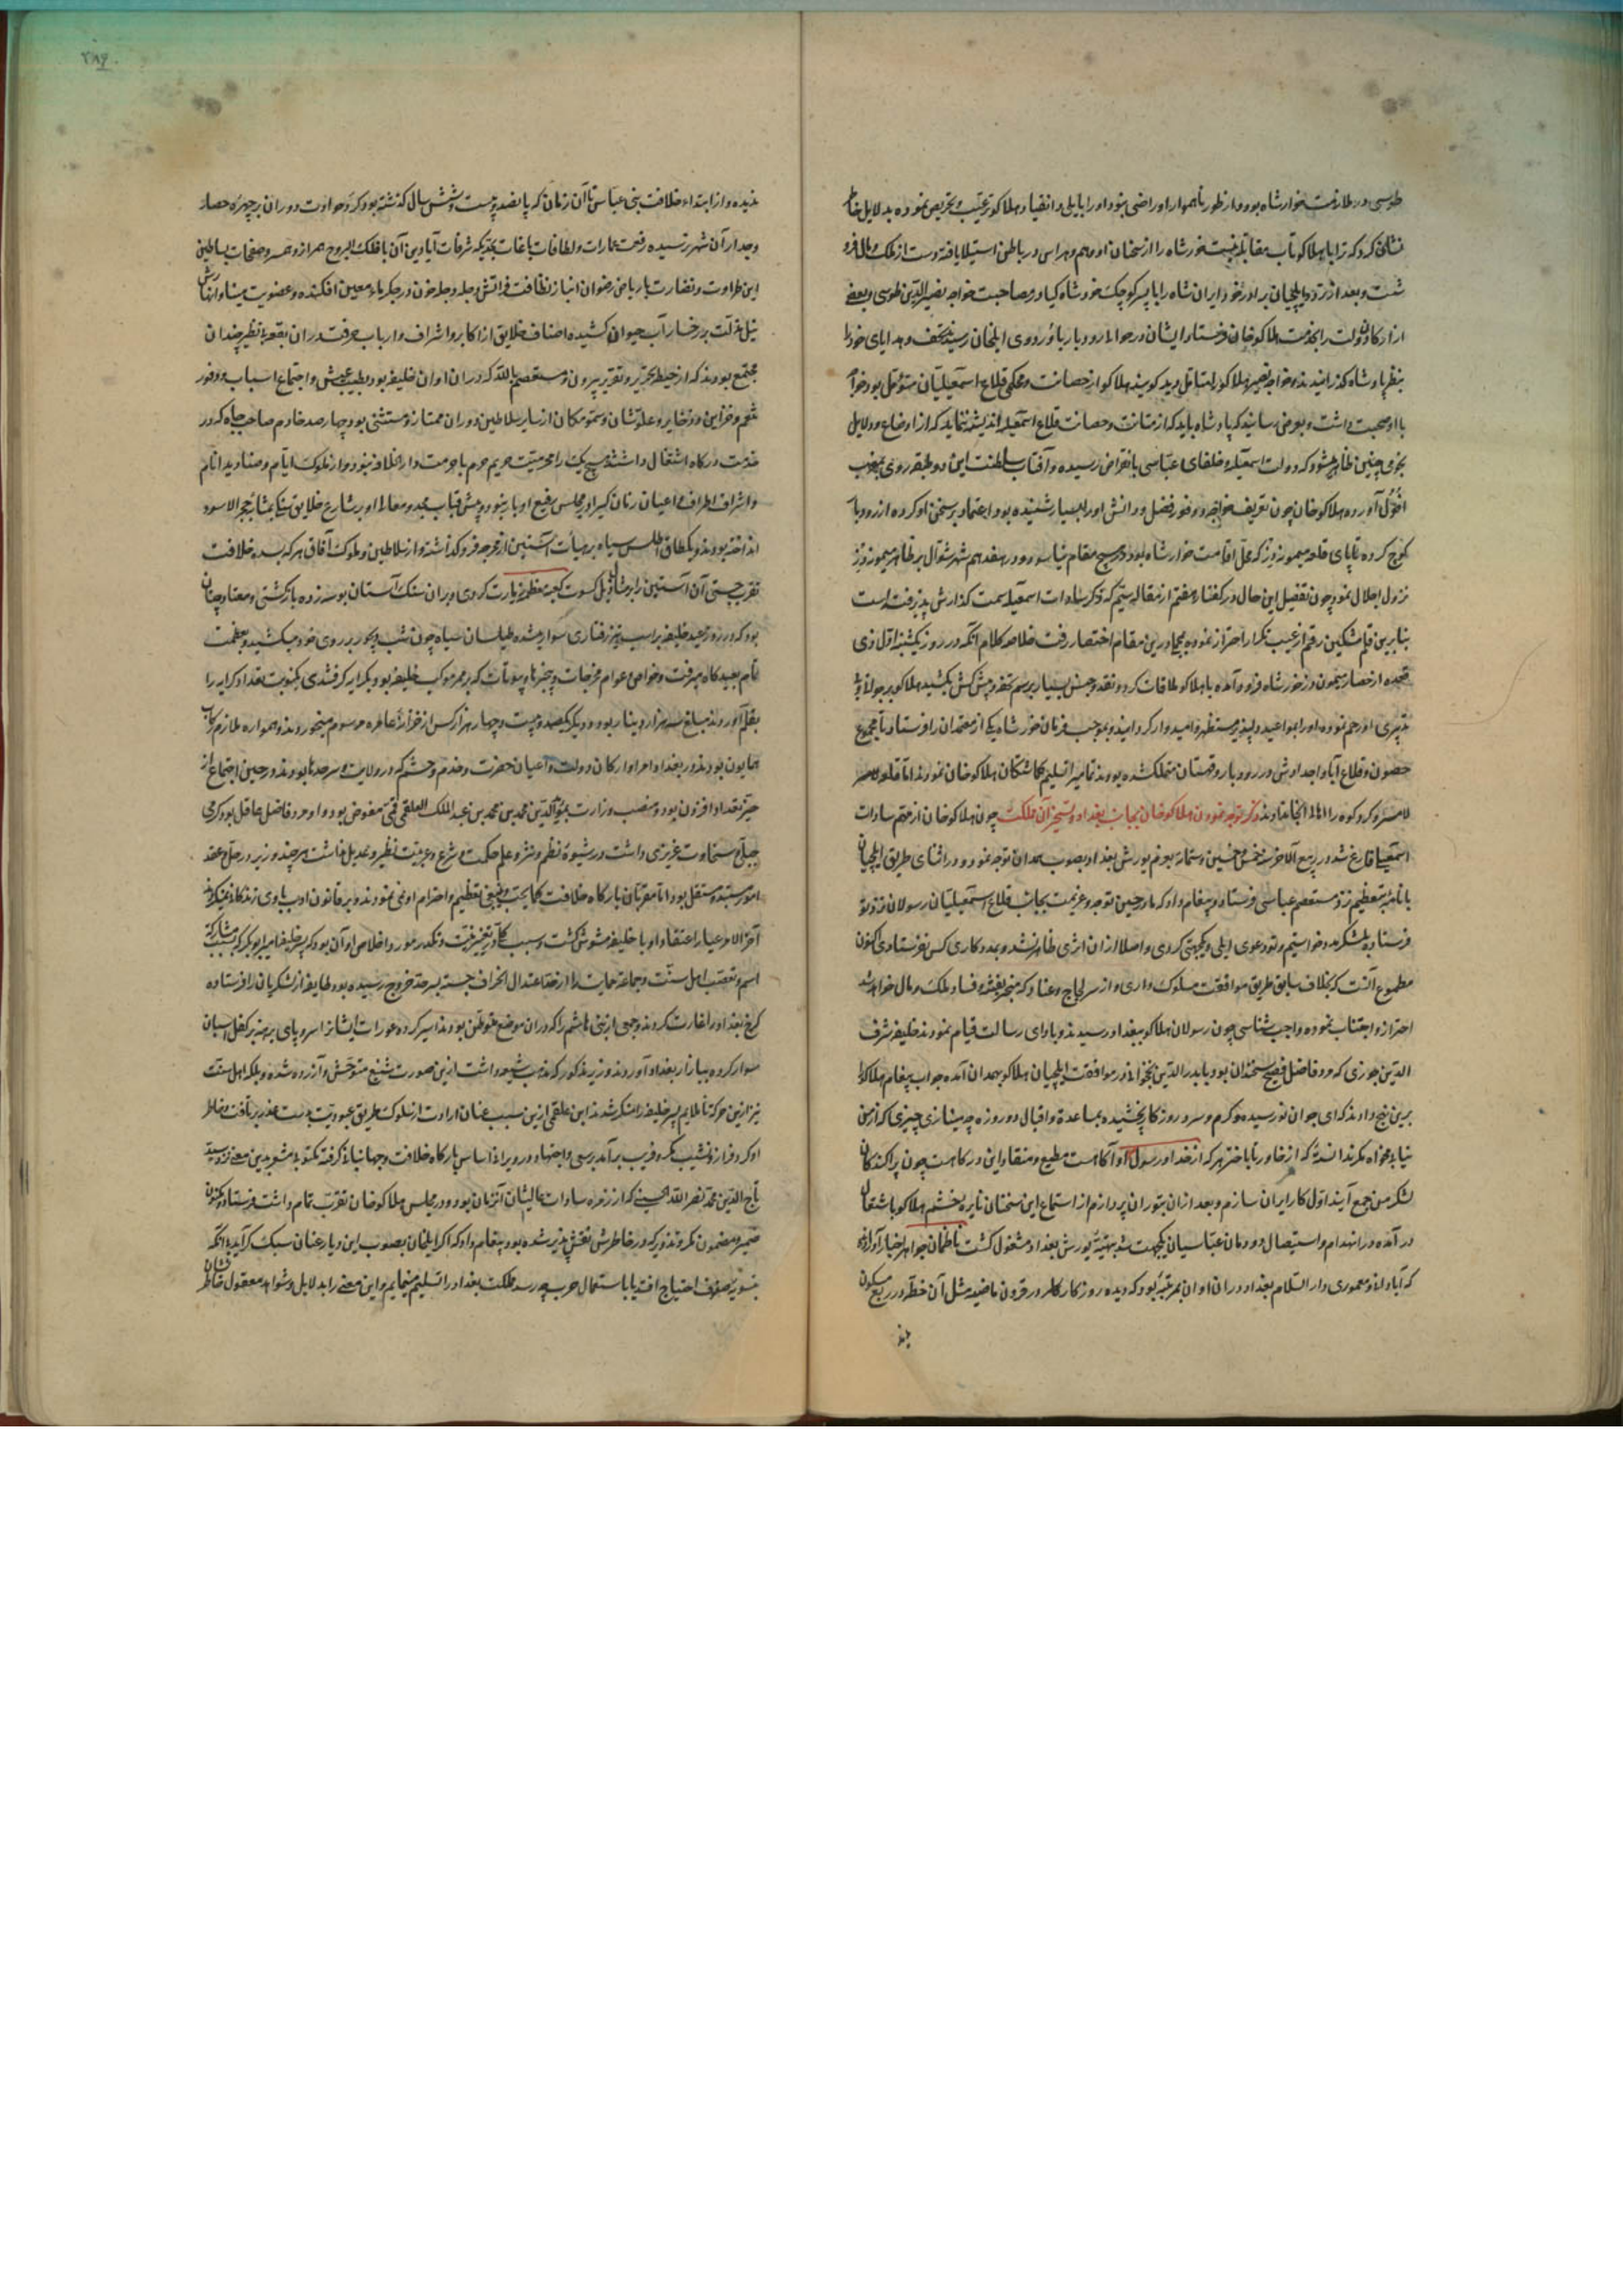 طوسی در ملازمت خوارشاه بود و از طور ناهموار او راضی نبود او را بایلی و انقیاد هلاکو ترغیب و تحریص نموده بدلایل
نشان کرد که ترا با هلاکو تاب مقابله نیست خورشاه را از سخنان او وهم و هراس در باطن استیلا یافت و دست از ملک و مال
شست و بعد از تردد ایلچیان برادر خود ایران شاه را با پسر کوچک خود شاه کیا در مصاحبت خواجه نصیرالدین طوسی و بعضی
از ارکان دولت بخدمت هلاکو خان فرستاد ایشان در حوالی رودبار باردوی ایلخان رسیده تحف و هدایای خود را
بنظر پادشاه گذرانیدند و خواجه نصیر هلاکو را متأمل دید گویند هلاکو از حصانت و محکمی قلاع اسمعیلیان متوهم بود
با او صحبت داشت و بعرض رسانید که پادشاه باید که از متانت و حصانت قلاع اسمعیلیه اندیشه ننماید که از اوضاع و دلایل
نجومی چنین ظاهر میشود که دولت اسمعیلیه و خلفای عباسی بانقراض رسیده و آفتاب سلطنت این دو طبقه روی بمغرب
افول آورده هلاکو خان چون تعریف خواجه و وفور فضل و دانش او را بسیار شنیده بود اعتماد بر سخن او کرده از رودبار
کوچ کرده تا پای قلعه میمون دز که محل اقامت خوارشاه بود در هیچ مقام نیاسود و در هفدهم شهر شوال بر ظاهر میمون دز
نزول اجلال نمود چون تفصیل این حال در گفتار هفتم از مقاله ستم که ذکر سادات اسمعیلیه سمت گذارش پذیرفته است
بنابرین قلم مشکین رقم از عیب تکرار احتراز نموده درین مقام اختصار رفت خلاصه کلام آنکه در روز یکشنبه اول ذی
قعده از حصار میمون دز خورشاه فرود آمده با هلاکو ملاقات کرد و نقد و جنس بسیار برسم تحفه و پیش کش کشید هلاکو بر جوانی و
تدبیری او رحم نموده او را بمواعید دلپذیر مستظهر و امیدوار گردانید و بموجب فرمان خورشاه یکی از معتمدان را فرستاد تا مجموع
حصون و قلاع آبا و اجدادش در رودبار و قهستان متملک شده بودند تمامی را تسلیم گماشتگان هلاکو خان نمودند اما قلعه
لامسر و کردکوه را ذکر توجه نمودن هلاکو خان بجانب بغداد و تسخیر آن مملکت چون هلاکو خان از مهم سادات
اسمعیلیه فارغ شد در ربیع الاخر سنه خمس و خمسین و ستمائه بعزم یورش بغداد بصوب همدان توجه نمود و در اثنای طریق ایلچیان
با نامه تعظیم نزد مستعصم عباسی فرستاد و پیغام داد که ما در حین توجه و عزیمت بجانب قلاع اسمعیلیان رسولان نزد تو
فرستاده لشکر مدد خواستیم و تو دعوی ایلی و یکجهتی کردی و اصلا از آن اثری ظاهر نشد و بمددکاری کس نفرستادی اکنون
مطموع آنست که بخلاف سابق طریق موافقت مسلوک داری و از سر لجاج و عناد که منجر بفتنه و فساد ملک و مال خواهد شد
احتراز و اجتناب نموده واجب شناسی چون رسولان هلاکو ببغداد رسیدند و بادای رسالت قیام نمودند خلیفه شرف
الدین جوزی که مرد فاضل فصیح سخندان بود با بدرالدین در موافقت ایلچیان هلاکو بهمدان آمده جواب پیغام هلاکو
برین نهج دادند که ای جوان نورسیده گرم و سرد روزگار نچشیده بمساعدة و اقبال دو روزه چه مینازی چیزی که از من
نیابی مخواه مگر ندانسته که از خاور تا باختر هر که از خدا و رسول آگاهست مطیع و منقاد این درگاهست چون پراکندگان
لشکر من جمع آیند اول کار ایران سازم و بعد از آن بتوران پردازم از استماع این سخنان نایره خشم هلاکو باشتعال
در آمده در انهدام و استیصال دودمان عباسیان یکجهت شد بتهیه یورش بغداد مشغول گشت ناظمان جواهر اخبار آورده
که آبادانی و معموری دار السلام بغداد در آن اوان بمرتبه بود که دیده روزگار در قرون ماضیه مثل آن خطه در ربع مسکون
ندیده و از ابتداء خلافت بنی عباس تا آن زمان که پانصد و بیست و شش سال گذشته بود گرد حوادث دوران بر چهره حصار
و جدار آن شهر نرسیده رفعت عمارات و لطافت باغات بحدی که شرفات آبادیش آن با فلک البروج همراز و همسر و صفحات بساطین
این طراوت و نضارت با ریاض رضوان انباز نظافت فراتش دجله دجله خون در جگر ماء معین افکنده و عذوبت
نیل مذلت بر رخسار آب حیوان کشیده اصناف خلایق از اکابر و اشراف و ارباب حرفت در آن بقعه بی نظیر چندان
مجتمع بودند که از حیطه تحریر و تقریر بیرون و مستعصم بالله که در آن اوان خلیفه بود بطیب عیش و اجتماع اسباب و وفور
تنعم و خزاین و ذخایر و علو شان و سمو مکان از سایر سلاطین دوران ممتاز و مستثنی بود چهارصد خادم صاحب جاه که در
خدمت درگاه اشتغال داشتند هیچ یک را محرمیت حریم حرم با حرمت دار الخلافه نبود و از ملوک ایام و صنادید انام
و اشراف اطراف و اعیان زمان کسی را در مجلس رفیع او بار نبود و پیش قباب مجد و معالی او بر شارع خلایق سنگی بمثابه حجر الاسود
انداخته بودند و یکطاق اطلس سیاه بر هیأت آستین از غرفه فرو گذاشته و از سلاطین و ملوک آفاق هر که بسده خلافت
تقرب جستی آن آستین را بر مثال ذیل کسوت کعبه معظمه زیارت کردی و بر آن سنگ آستان بوسه زده بازگشتی و معتاد چنان
بود که در روز عید خلیفه بر اسب تیز رفتاری سوار شده طیلسان سیاه چون شب دیجور بر روی خود میکشید و بعظمت
تمام بعیدگاه میرفت و خواص و عوام غرفات و پنجرها و بیوتات که بر ممر موکب خلیفه بود بکرا میگرفتندی یکنوبت تعداد کرایه را
بقلم آوردند مبلغ سه هزار دینار بود و دیگر یکصد و بیست و چهار هزار کس از خزانه عامره مرسوم میخوردند و همواره ملازم رکاب
همایون بودند و در بغداد امرا و ارکان دولت و اعیان حضرت و خدم و حشم که در ولایت و سرحدها بودند در حین اجتماع از
حیز تعداد افزون بود و منصب وزارت بمؤیدالدین محمد بن محمد بن عبد الملک العلقمی قمی مفوض بود و او مرد فاضل عاقل بود کرمی
جبلی و سخاوت غریزی داشت در شیوه نظم و نثر و علم حکمت و شرع و عربیت نظیر و عدیل نداشت هر چند وزیر در حل و عقد
امور مستبد و مستقل بود اما مقربان بارگاه خلافت کما یحب و ینبغی تعظیم و احترام او نمی نمودند و بر قانون ادب با وی زندگانی نمیکردند
آخر الامر عیار اعتقاد او با خلیفه مشوش گشت و سبب تغییر نیت و تکدر مورد اخلاص او آن بود که پسر خلیفه امیر ابوبکر که بسبب مشارکت
اسم و تعصب اهل سنت و جماعة حمایت را از حد اعتدال انحراف جسته بسرحد خروج رسیده بود طایفه از لشکریان را فرستاده
کرخ بغداد را غارت کردند و جمعی از بنی هاشم را که در آن موضع متوطن بودند اسیر کرده عورات ایشان را سر و پای برهنه بر کفل اسبان
سوار کرده ببازار بغداد آوردند وزیر مذکور که مذهب شیعه داشت ازین صورت شنیع متوحش و آزرده شده و بلکه اهل سنت
نیز ازین حرکة ناملایم پسر خلیفه را منکر شدند ابن علقمی ازین سبب عنان ارادت از سلوک طریق عبودیت بدست غدر بر تافت و خاطر
او گرد فراز و نشیب مکر و فریب بر آمد برسی و اجتهاد در ویرانی اساس بارگاه خلافت و جهانبانی گرفته مکتوبی مشعر بدین معنی نزد سید
تاج الدین محمد نصر الله الحسینی که از زمره سادات عالیشان آنزمان بود و در مجلس هلاکو خان تقرب تمام داشت فرستاد و مکنون
ضمیر و مضمون مکر و تزویر که در خاطرش نقش پذیر شده بود پیغام داد که اگر ایلخان بصوب این دیار عنان سبک گرداند بی آنکه
بتسویه صفوف احتیاج افتد یا باستعمال حرب چه رسد مملکت بغداد را تسلیم مینمایم و این معنی را بدلایل و شواهد معقول خاطر نشان